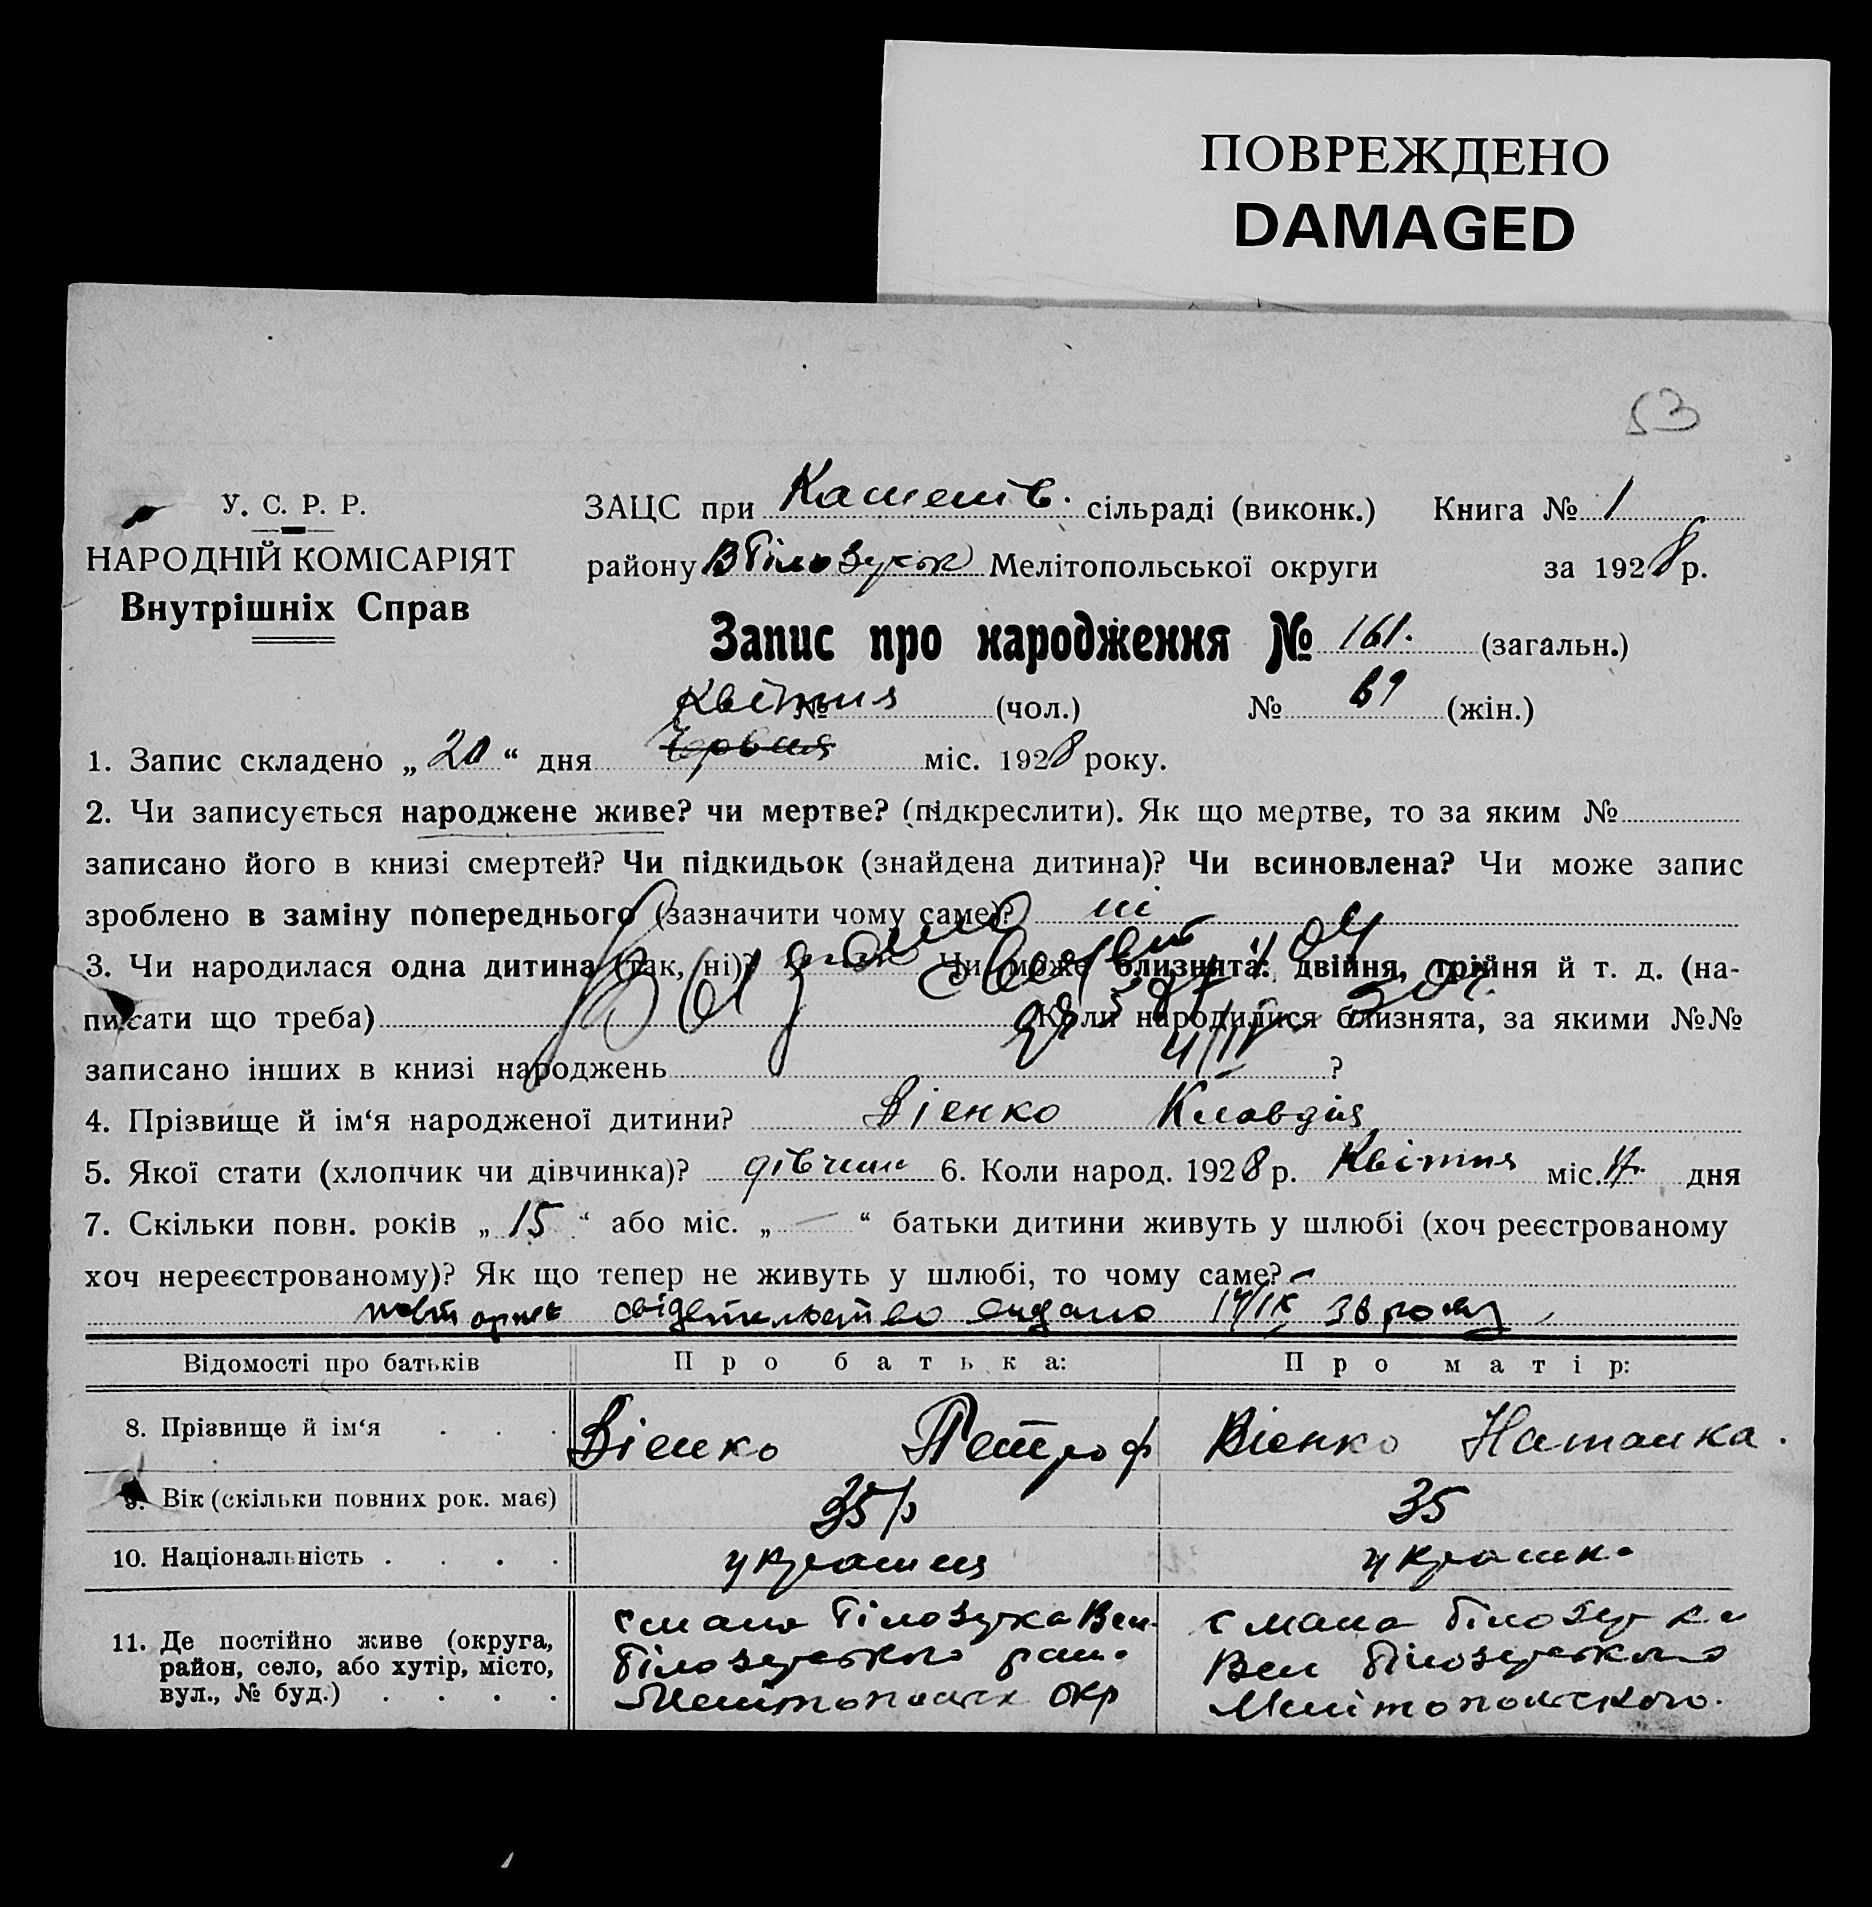 ПОВРЕЖДЕНО
DAMAGED
53
У. С. Р. Р.
НАРОДНІЙ КОМІСАРІЯТ
Внутрішніх Справ
ЗАЦС при сільраді (виконк.) Книга № 1
району Мелітопольської округи за 1928 р.
Запис про народження № 161. (загальн.)
Квітня № (чол.) № 69 (жін.)
1. Запис складено „20“ дня Червня міс. 1928 року.
2. Чи записується народжене живе? чи мертве? (підкреслити). Як що мертве, то за яким №
записано його в книзі смертей? Чи підкидьок (знайдена дитина)? Чи всиновлена? Чи може запис
зроблено в заміну попереднього (зазначити чому саме)? ні
3. Чи народилася одна дитина (так, ні)? Чи може близнята: двійня, трійня й т. д. (на-
писати що треба) Коли народилися близнята, за якими №№
записано інших в книзі народжень ?
4. Прізвище й ім‘я народженої дитини? Вієнко Клавдія
5. Якої стати (хлопчик чи дівчинка)? дівчин 6. Коли народ. 1928 р. Квітня міс. дня
7. Скільки повн. років „15“ або міс. „—“ батьки дитини живуть у шлюбі (хоч реєстрованому
хоч нереєстрованому)? Як що тепер не живуть у шлюбі, то чому саме? –
свідетельство видано 17/IX 36 року
Відомості про батьків Про батька: Про матір:
8. Прізвище й ім‘я . . . Вієнко Петроф Вієнко Наталка.
9. Вік (скільки повних рок. має) 35 р 35
10. Національність . . . . украинц украинк.
11. Де постійно живе (округа,
район, село, або хутір, місто,
вул., № буд.) . . . .
с мала Білозурка Вел.
Білозурського рай.
окр
с мала Білозурка
Вел Білозурського
Мелітопольского.